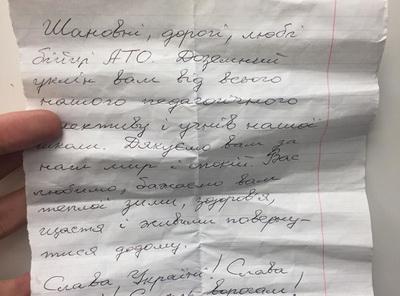 Шановні, дорогі, любі
бійці АТО. Доземний
уклін вам від всього
нашого педагогічного
лективу і учнів нашої
школи. Дякуємо вам за
наш мир і спокій. Вас
любимо, бажаємо вам
теплої зими, здоров'я,
щастя і живими поверну-
тися додому.
Слава Україні! Слава